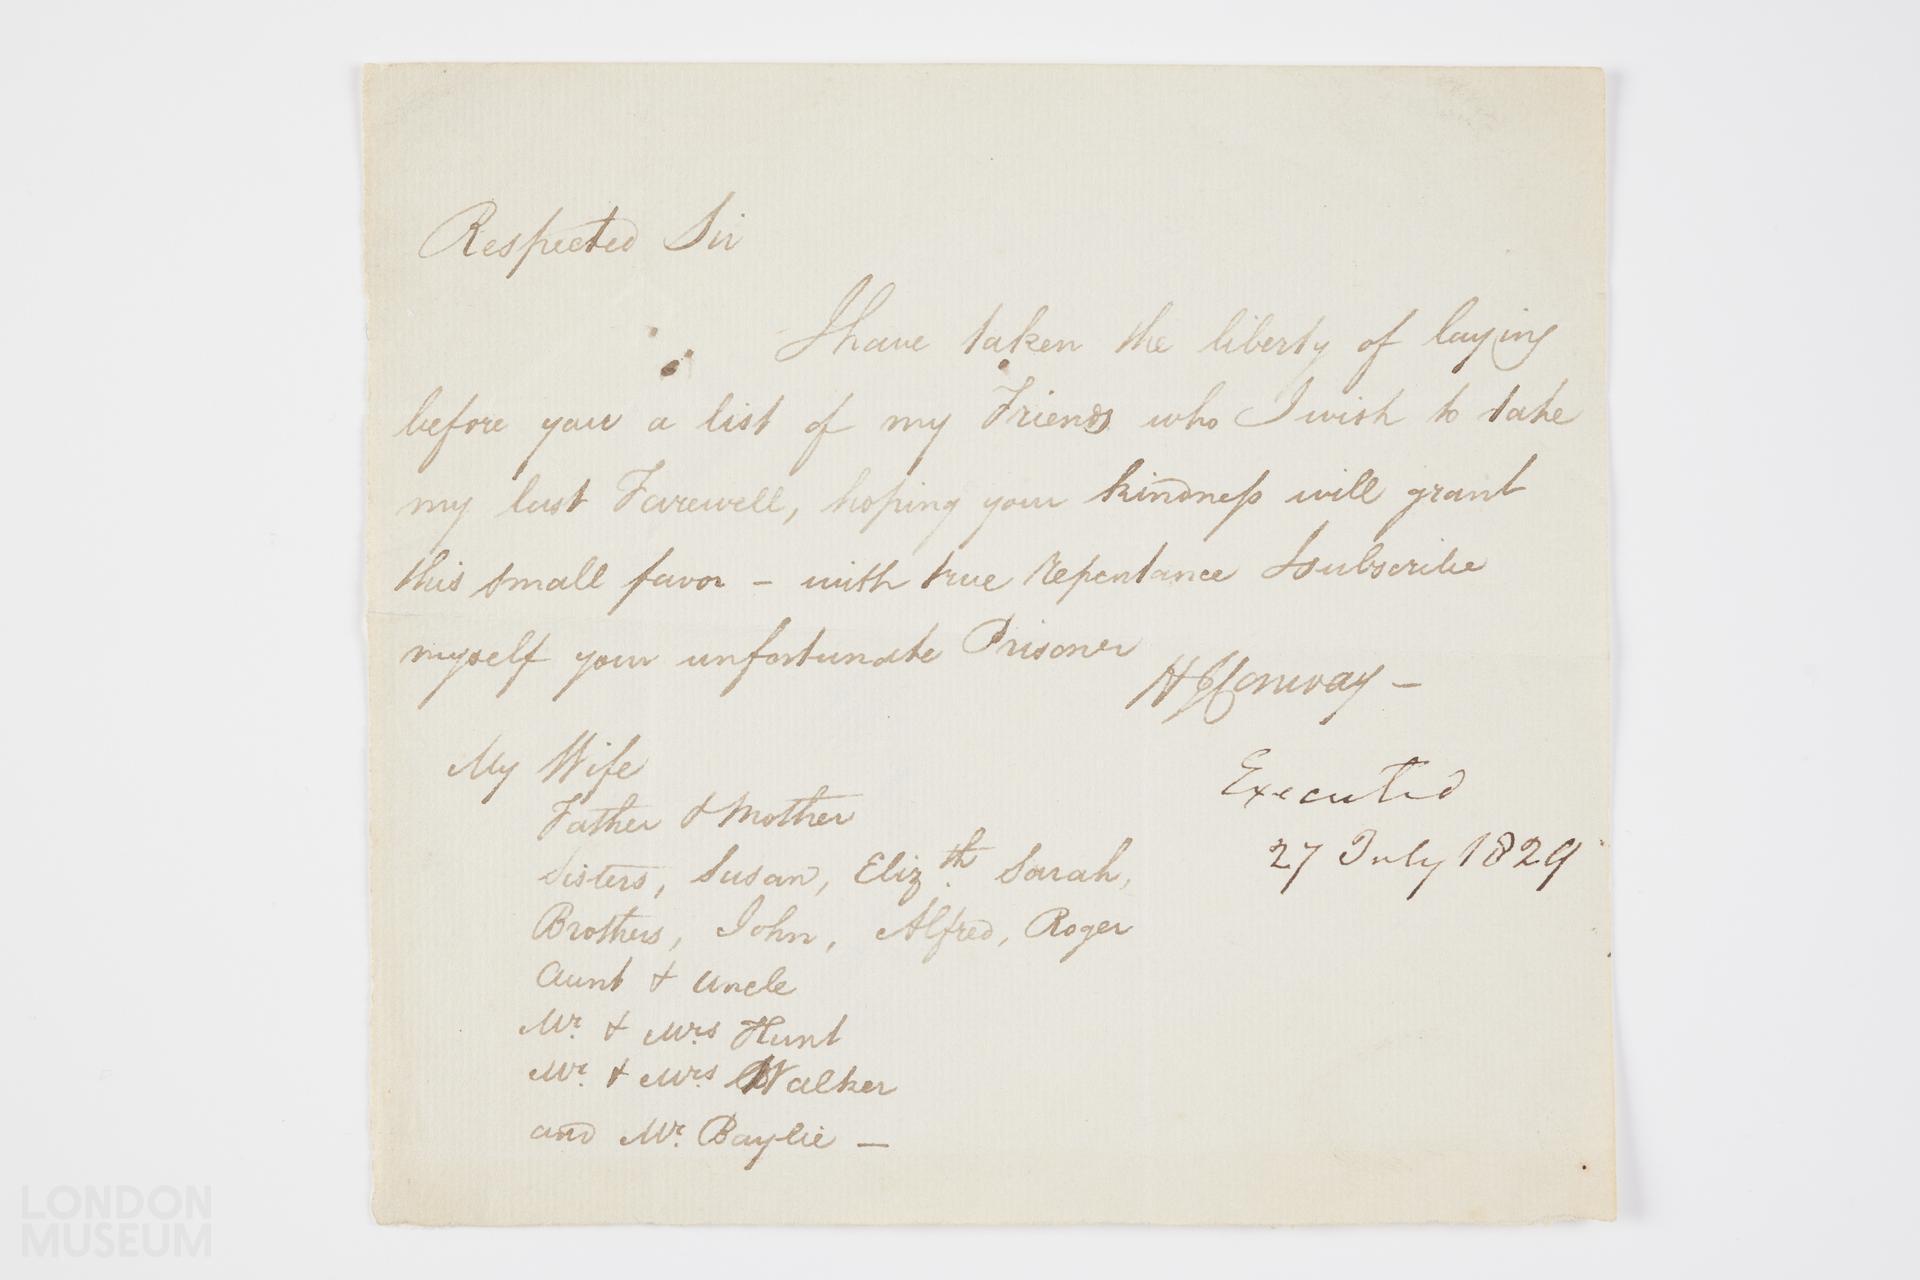 Respected Sir
I have taken the liberty of laying
before you a list of my Friends who I wish to take
my last Farewell, hoping your kindness will grant
this small favor – with true Repentance I subscribe
myself your unfortunate Prisoner
H J Conway –
My Wife
Executed
Father & Mother
27 July 1829
Sisters, Susan, Elizth. Sarah,
Brothers, John, Alfred, Roger
Aunt & Uncle
Mr. & Mrs Hunt
Mr. & Mrs Walker
and Mr. Baylie –
LONDON
MUSEUM